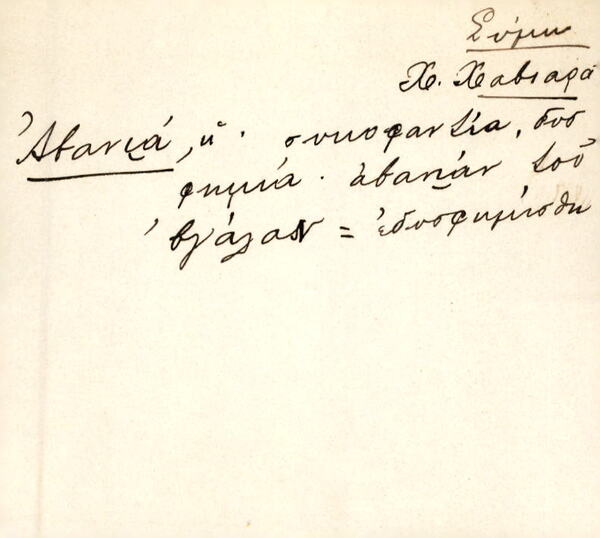 Σύμη
Χ. Χαβιαρά
Ἀβανιά, ἡ· συκοφαντία, δυσ
φημία· ἀβανιὰν τοῦ
ἐβγάλαν = ἐδυσφημίσθη